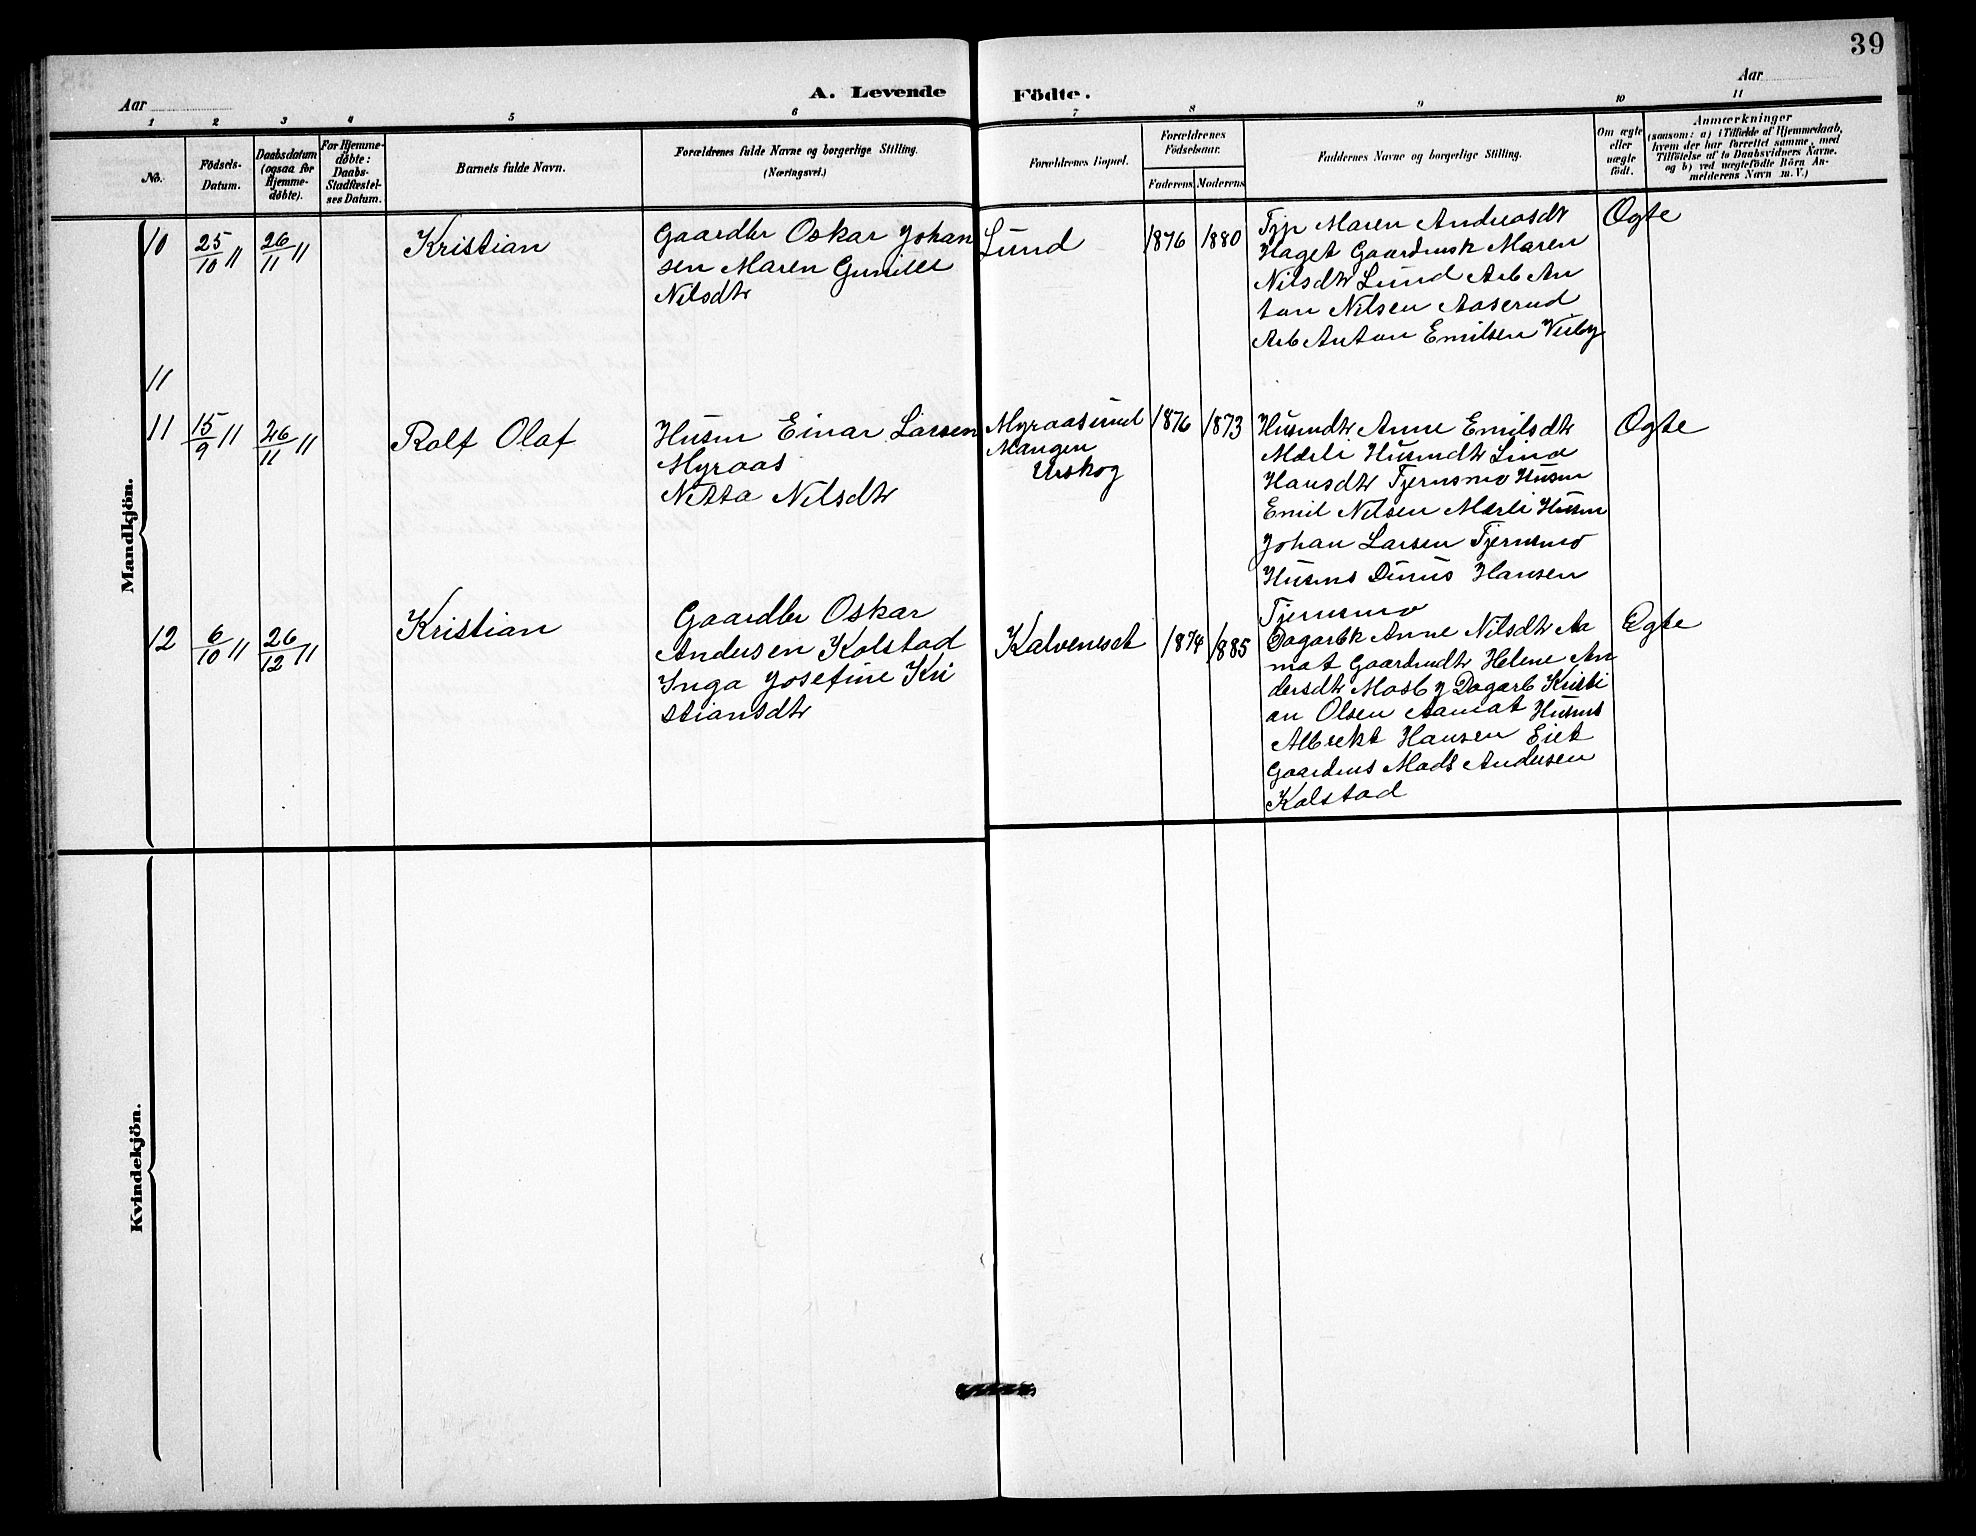 39
Aar
A. Levende Födte.
Aar
1 2 3 4 5 6 7 8 9 10 11
No.
Födsels-
Datum.
Daabsdatum
(ogsaa for
Hjemme-
døbte).
For Hjemme-
døbte:
Daabs-
Stadfæstel-
ses Datum.
Barnets fulde Navn.
Forældrenes fulde Navne og borgerlige Stilling.
(Næringsvei.)
Forældrenes Bopæl.
Forældrenes
Födselsaar.
Faderens Moderens
Faddernes Navne og borgerlige Stilling.
Om ægte
eller
uægte
født.
Anmærkninger
(saasom: a) i Tilfælde af Hjemmedaab,
hvem der har forrettet samme, med
Tilföielse af to Daabsvidners Navne.
og b) ved uægtefödte Börn An-
melderens Navn m. V.)
Mandkjön.
10
25/10 11
26/11 11
Kristian
Gaardbr Oskar Johan
sen Maren Gunille
Nilsdtr
Lund
1876
1880
Tjp Maren Andreasdt
Haget Gaardmsk Maren
Nilsdtr Lund Arb An
ton Nilsen Aaserud
Arb Anton Emilsen Visby
Ægte
11
11
15/9 11
26/11 11
Rolf Olaf
Husm Einar Larsen
Myraas
Netta Nilsdtr
Myraasund
Mangen
Urskog
1876
1873
Husmdtr Anne Emilsdtr
Mærli Husmdtr Lina
Hansdtr Tjernsmo Husm
Emil Nilsen Mærli Husm
Johan Larsen Tjernsmo
Husms Dinus Hansen
Tjernsmo
Ægte
12
6/10 11
26/12 11
Kristian
Gaardbr Oskar
Andersen Kolstad
Inga Josefine Kri
stiansdtr
Kalvenset
1874
1885
Dagarbk Anne Nilsdtr Aa
mot Gaardmdtr Helene An
dersdtr Mosby Dagarb Kristi
an Olsen Aamot Husms
Albrekt Hansen Eiet
Gaardms Mads Andersen
Kolstad
Ægte
Kvindekjön.